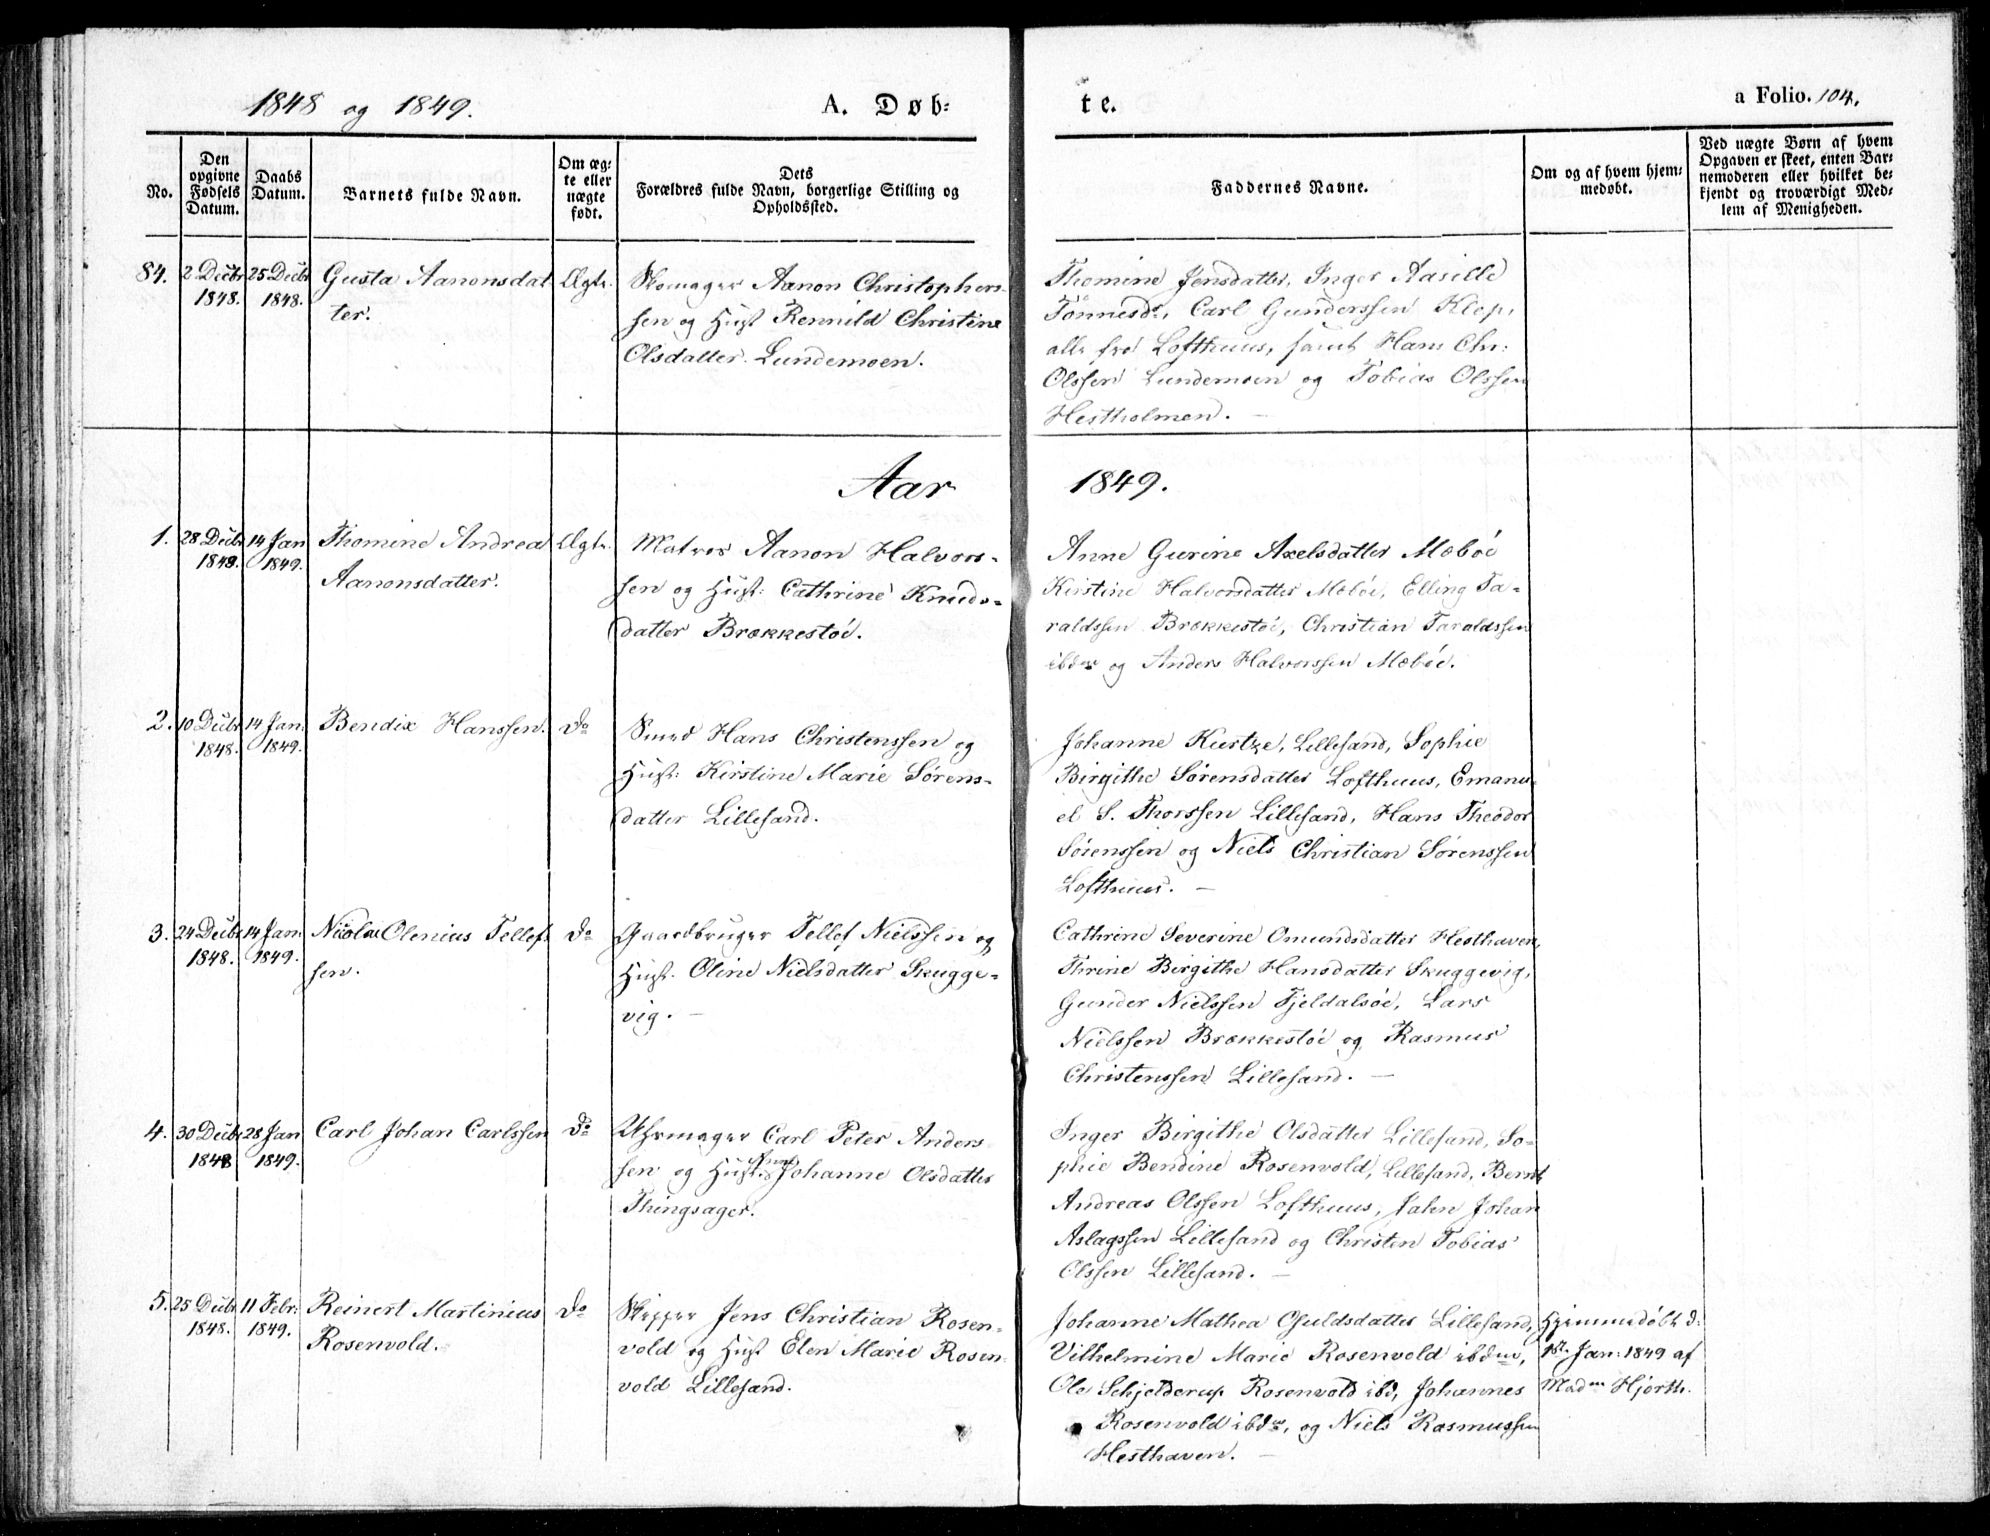 1848 og 1849.
A. Døb=
te.
a Folio. 104.
No.
Den
opgivne
Fødsels
Datum.
Daabs
Datum.
Barnets fulde Navn.
Om æg=
te eller
uægte
født.
Dets
Forældres fulde Navn, borgerlige Stilling og
Opholdssted.
Faddernes Navne.
Om og af hvem hjem=
medøbt.
Ved uægte Børn af hvem
Opgaven er skeet, enten Bar=
nemoderen eller hvilket be=
kjendt og troværdigt Med=
lem af Menigheden.
84.
2 Decbr
1848.
25 Decbr
1848.
Gusta Aanonsdat
ter.
Ægte.
Skomager Aanon Christophers=
sen og Hust Rennild Christine
Olsdatter. Lundemoen.
Thomine Jensdatter, Inger Aasille
Tønnesdr, Carl Gunderssen Klep,
alle fra Lofthuus, samt Hans Chr:
Olssen Lundemoen og Tobias Olssen
Hestholmen. —
Aar
1849.
1.
28 Decbr
1848.
14 Jan
1849.
Thomine Andrea
Aanonsdatter.
Ægte.
Matros Aanon Halvors=
sen og Hust: Cathrine Knuds=
datter Brækkestøe.
Anne Gurine Axelsdatter Mæbøe
Kirstine Halvorsdatter Mæbøe, Elling Ta=
raldssen Brækkestøe, Christian Taraldssen
ibdm og Anders Halvorssen Mæbøe.
2.
10 Decbr
1848.
14 Jan.
1849.
Bendix Hanssen.
do
Smed Hans Christenssen og
Hust: Kirstine Marie Sørens=
datter Lillesand.
Johanne Kurtze, Lillesand, Sophie
Birgithe Sørensdatter Lofthuus, Emanu=
el S. Thorssen Lillesand, Hans Theodor
Sørenssen og Niels Christian Sørenssen
Lofthuus. —
3.
24 Decbr
1848.
14 Jan.
1849.
Nicolai Olenius Tellef
sen.
do
Gaardbruger Tellef Nielssen og
Hust. Oline Nielsdatter Skugge=
vig. —
Cathrine Severine Omundsdatter Hesthaven,
Thrine Birgithe Hansdatter Skuggevig,
Gunder Nielssen Tjeldalsøe, Lars
Nielssen Brækkestøe og Rasmus
Christenssen Lillesand. —
4.
30 Decbr
1848
28 Jan
1849.
Carl Johan Carlssen
do
Uhrmager Carl Peter Anders
sen og Hust: Johanne Olsdatter
Thingsager.
Inger Birgithe Olsdatter Lillesand, So=
phie Bendine Rosenvold, Lillesand, Bernt
Andreas Olssen Lofthuus, Jahn Johan
Aslagssen Lillesand og Christen Tobias
Olssen Lillesand. —
5.
25 Decbr
1848.
11 Febr:
1849.
Reinert Martinius
Rosenvold.
do
Skipper Jens Christian Rosen=
vold og Hust Elen Marie Rosen=
vold Lillesand.
Johanne Mathea Guldsdatter Lillesand,
Vilhelmine Marie Rosenvold ibdm,
Ole Schjelderup Rosenvold ibd, Johannes
Rosenvold ibdm, og Niels Rasmussen
Hesthaven. —
Hjemmedøbt d:
1ste Jan: 1849 af
Madm Hjorth.